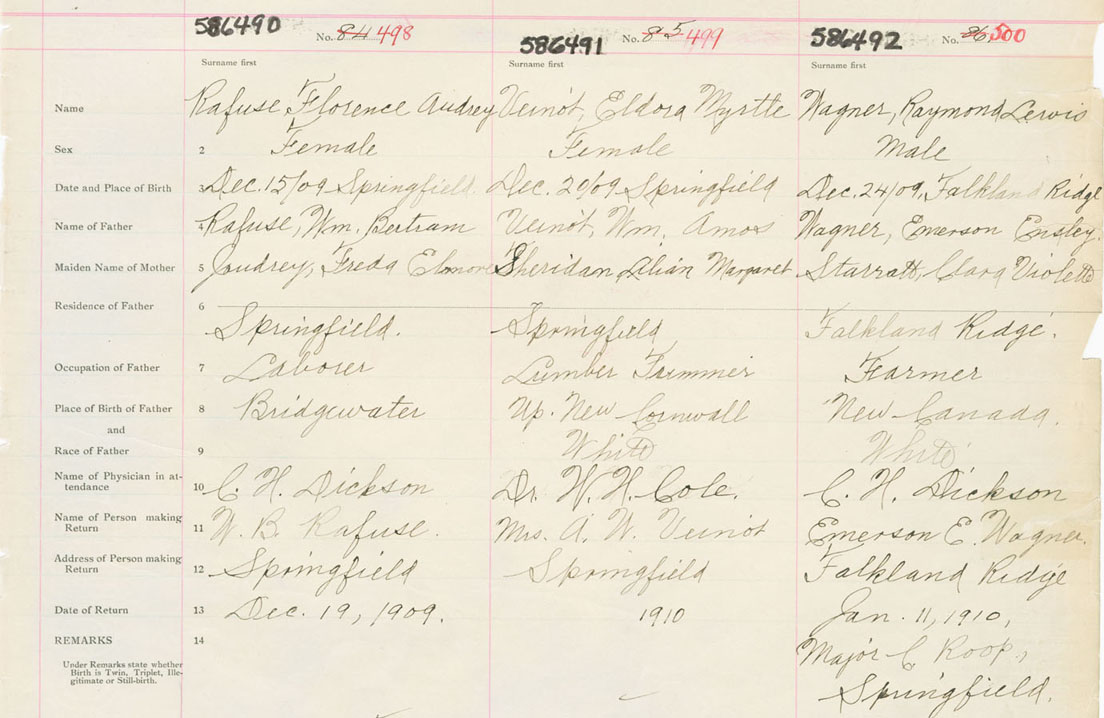 586490 No. 84 498 586491 No. 85 499 586492 No. 86, 500
Surname first Surname first Surname first
Name Rafuse, Florence Audrey Veinot, Eldora Myrtle Wagner, Raymond Lewis
Sex 2 Female Female Male
Date and Place of Birth 3 Dec. 15/09 Springfield. Dec. 20/09 Springfield Dec. 24/09, Falkland Ridge
Name of Father 4 Rafuse, Wm. Bertram Veinot, Wm. Amos Wagner, Emerson Ensley.
Maiden Name of Mother 5 Joudrey, Freda Elmore Sheridan, Lilian Margaret Starratt, Clara Violetta
Residence of Father 6
Springfield. Springfield Falkland Ridge.
Occupation of Father 7 Laborer Lumber Trimmer Farmer
Place of Birth of Father 8 Bridgewater Up. New Cornwall New Canada.
and
Race of Father 9 White White
Name of Physician in at-
tendance 10 C. H. Dickson Dr. W. H. Cole. C. H. Dickson
Name of Person making
Return 11 W. B. Rafuse. Mrs. A. W. Veinot Emerson E. Wagner.
Address of Person making
Return 12 Springfield Springfield Falkland Ridge
Date of Return 13 Dec. 19, 1909. 1910 Jan. 11, 1910,
REMARKS 14 Major C. Roop,
Under Remarks state whether
Birth is Twin, Triplet, Ille-
gitimate or Still-birth.
Springfield.